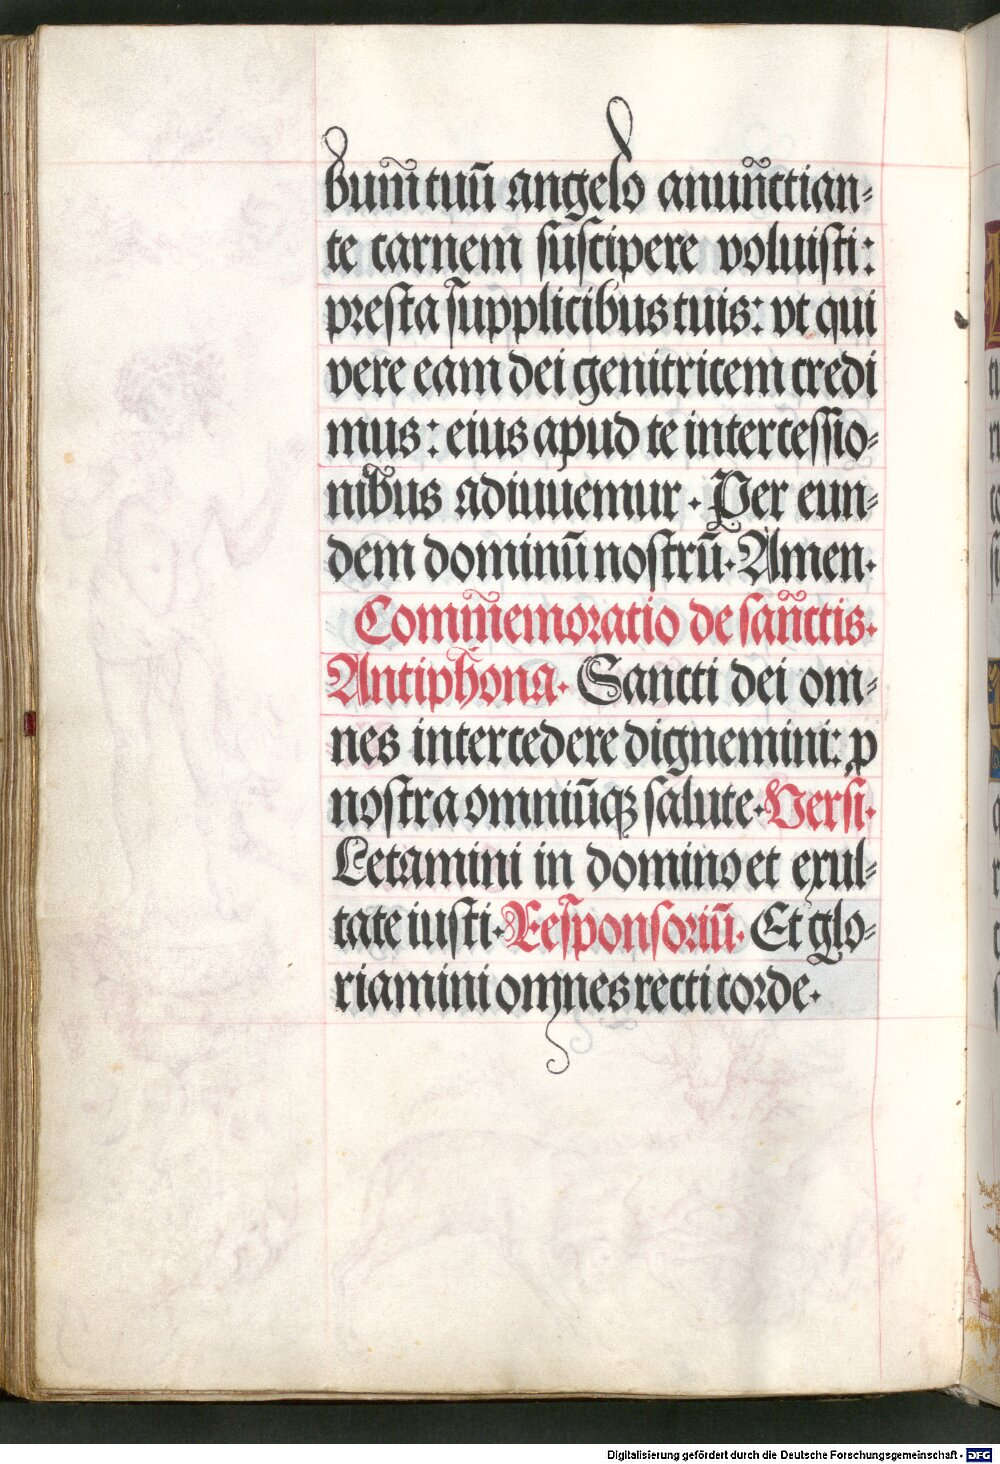 bum̃ tuū angelo anuñctian⸗
te carnem suscipere voluisti:
presta supplicibus tuis: vt qui
vere eam dei genitricem credi
mus: eius apud te intercessio⸗
nibus adiuuemur. Per eun⸗
dem dominū nostrū. Amen.
Comm̃emoratio de sañctis.
Antiphona. Sancti dei om⸗
nes intercedere dignemini: ꝓ
nostra omniūqꝫ salute. Versi.
Letamini in domino et exul⸗
tate iusti. Responsoriū. Et glo⸗
riamini omnes recti corde.
Digitalisierung gefördert durch die Deutsche Forschungsgemeinschaft - DFG